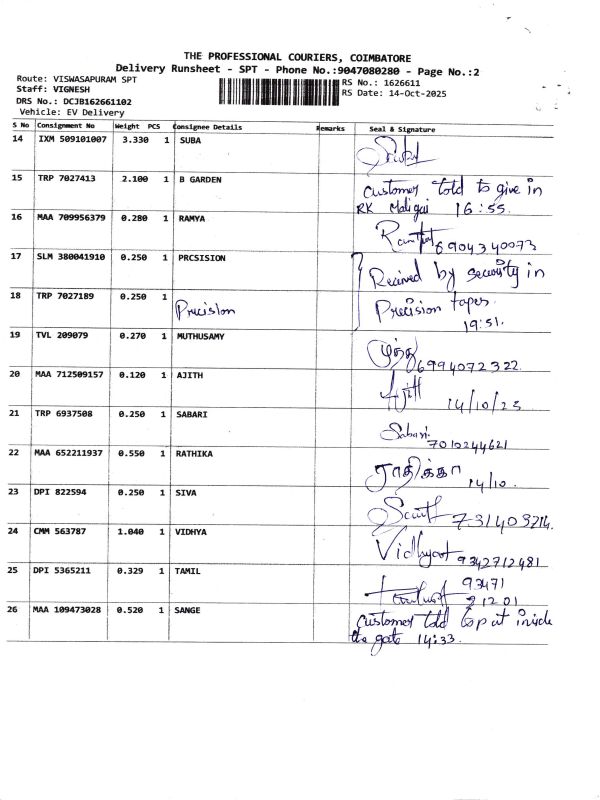 THE PROFESSIONAL COURIERS, COIMBATORE
Delivery Runsheet - SPT - Phone No.:9047080280 - Page No.:2
Route: VISWASAPURAM SPT
Staff: VIGNESH
DRS No.: DCJB162661102
Vehicle: EV Delivery
RS No.: 1626611
RS Date: 14-Oct-2025
S No Consignment No Weight PCS Consignee Details Remarks Seal & Signature
14 IXM 509101007 3.330 1 SUBA
15 TRP 7027413 2.100 1 B GARDEN Customer told to give in
RK Maligai 16:55.
16 MAA 709956379 0.280 1 RAMYA 6904340073
17 SLM 380041910 0.250 1 PRCSISION Recived by security in
18 TRP 7027189 0.250 1 Precision Precision tapes.
19:51.
19 TVL 209079 0.270 1 MUTHUSAMY முத்து 6994072322
20 MAA 712509157 0.120 1 AJITH Ajith 14/10/25
21 TRP 6937508 0.250 1 SABARI Sabari
7010244621
22 MAA 652211937 0.550 1 RATHIKA ராதிக்கா 14/10.
23 DPI 822594 0.250 1 SIVA
24 CMM 563787 1.040 1 VIDHYA 9342712481
25 DPI 5365211 0.329 1 TAMIL 93471
21201
26 MAA 109473028 0.520 1 SANGE Customer told to put inside
the gate 14:33.